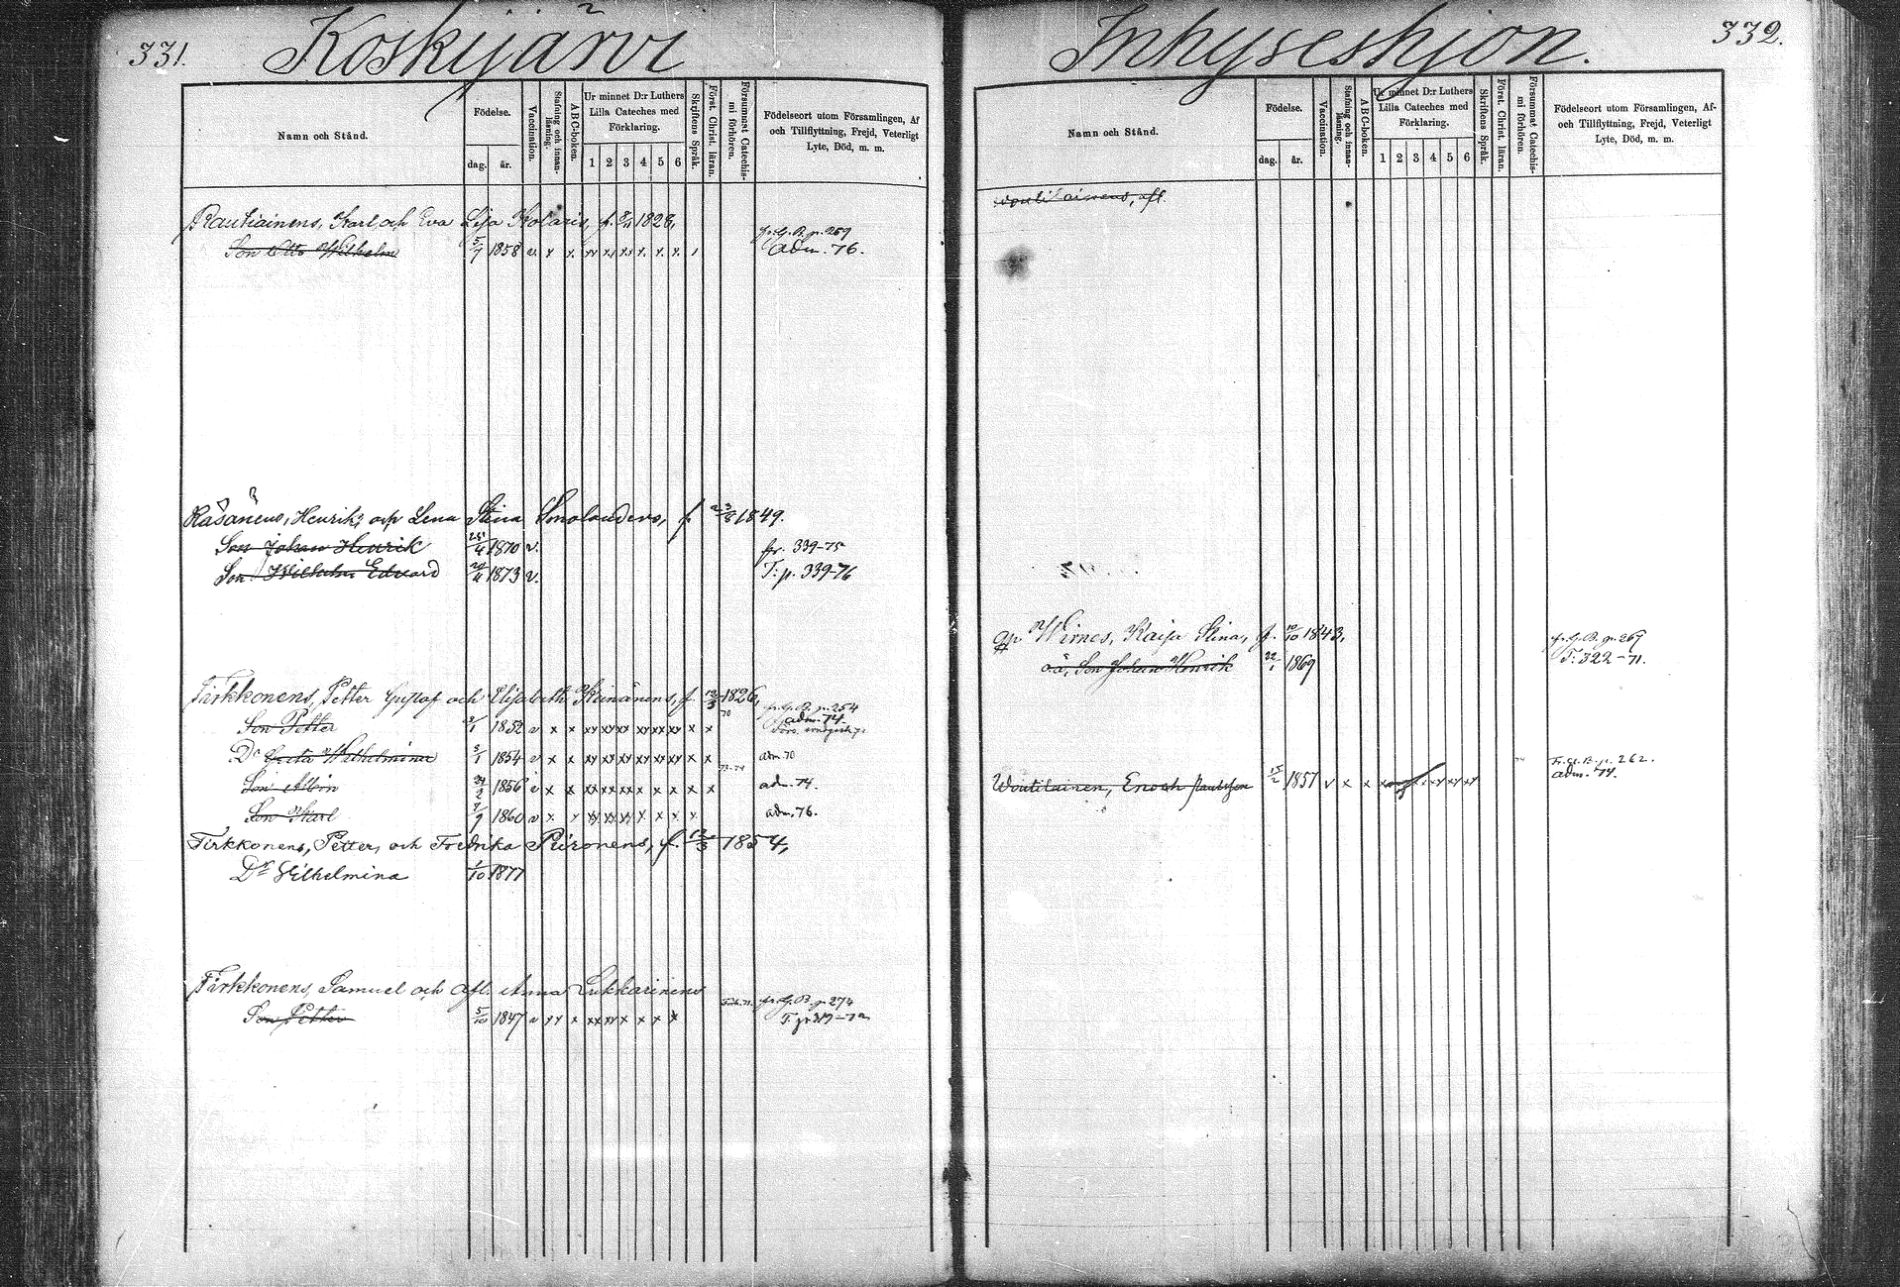 331.
Koskijärvi
Namn och Stånd.
Födelse.
dag.
år.
Vaccination.
Stafning och innanläsning.
A B C-boken.
Ur minnet D:r Luthers Lilla Cateches med Förklaring.
1 2 3 4 5 6
Skriftens Språk.
Först. Christ. läran.
Försummat Catechismi förhören.
Födelseort utom Församlingen, Af och Tillflyttning, Frejd, Veterligt Lyte, Död, m. m.
Rautiainens, Karl och Eva Lisa Kolaris, f. 1828,
fr. G. B. p. 269
Son Otto Wilhelm 5/7 1858 v x x xx xx xx x x x adm. 76.
Räsänens, Henrik, och Lena Stina Smolanders, f. 1849.
Son Johan Henrik 25/4 1870 v. fr. 339-75
Son Wilhelm Edvard 1873 v. T: p. 339-76
Tirkkonens, Petter Gustaf och Elisabeth Keinänens, f. 1826,
fr. G. B. p. 254
Son Petter 1852 v x x xx xx xx xx xx xx x x adm. 74.
Dr Greta Wilhelmina 5/1 1854 v x x xx xx xx xx xx xx x x adm. 70
Son Albin 1856 v x x xx xx xx x x x x x adm. 74.
Son Karl 7/9 1860 v x x xx xx xx x x x x adm. 76.
Tirkkonens, Petter, och Fredrika Piironens, f. 1854,
Dr Vilhelmina 1/10 1877
Tirkkonens, Samuel och afl. Anna Lukkarinens
fr. G. B. p. 274
Son Petter 5/10 1847 v xx x xx xx x x x x
332.
Inhyseshjon.
Namn och Stånd.
Födelse.
dag.
år.
Vaccination.
Stafning och innanläsning.
A B C-boken.
Ur minnet D:r Luthers Lilla Cateches med Förklaring.
1 2 3 4 5 6
Skriftens Språk.
Först. Christ. läran.
Försummat Catechismi förhören.
Födelseort utom Församlingen, Af- och Tillflyttning, Frejd, Veterligt Lyte, Död, m. m.
Voutilainens, afl.
Wirnes, Kaisa Stina, f. 12/10 1843,
fr. G. B. p. 269
oä, Son Johan Henrik 22/1 1869 T: 322-71.
Fr. G. B. p. 262.
Woutilainen, Enoch Paulsson 15/2 1857 v x x adm. 74.